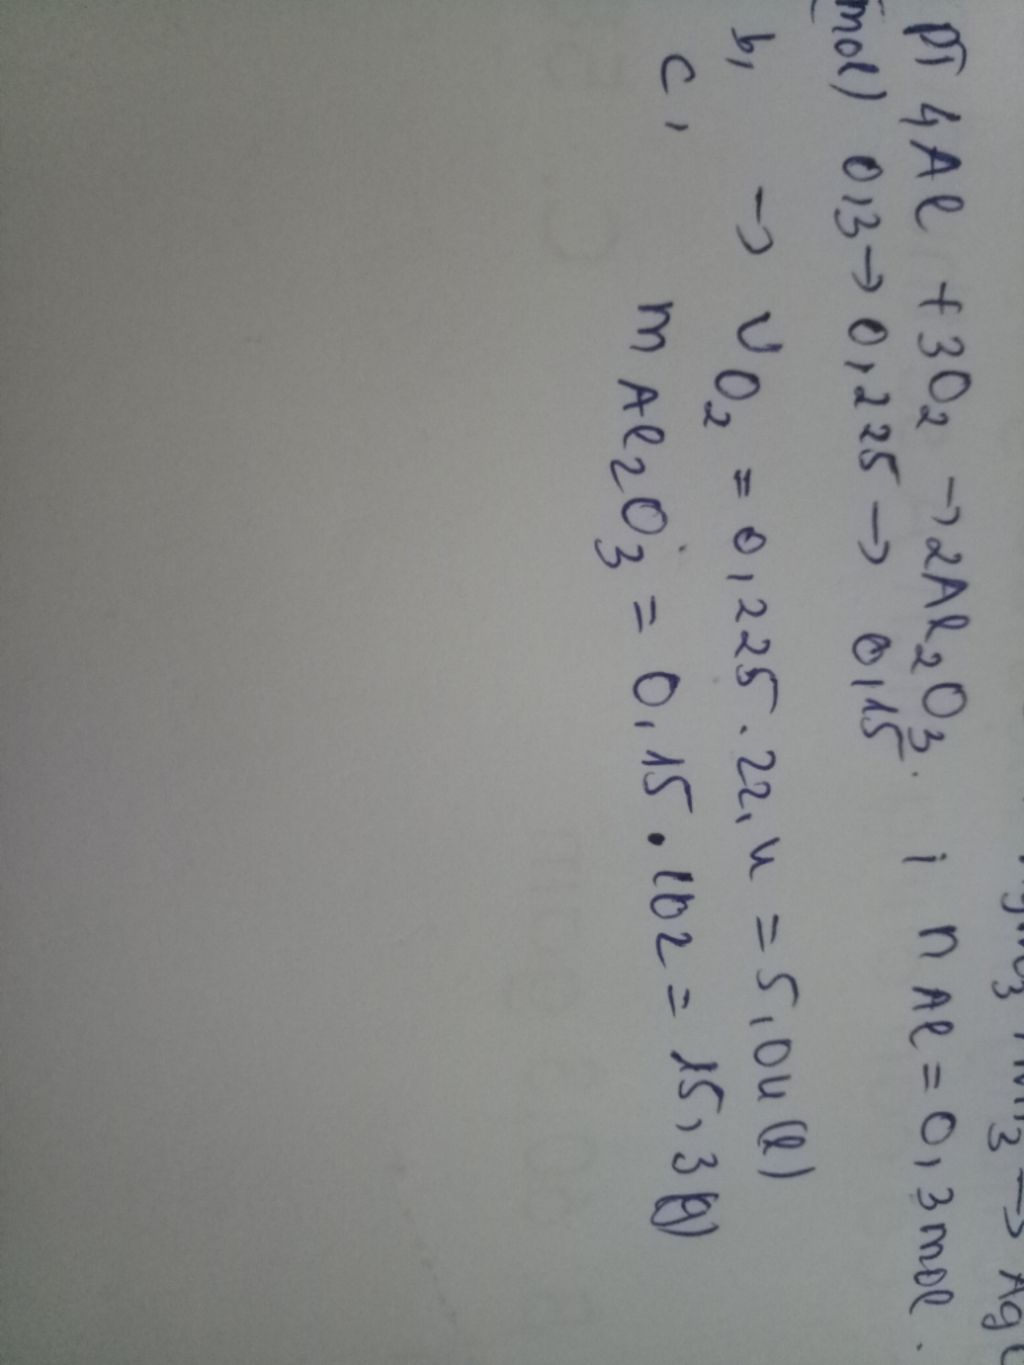 PT 4Al + 3O₂ → 2Al₂O₃. ; n Al = 0,3 mol.
mol) 0,3 → 0,225 → 0,15
b, → VO₂ = 0,225 . 22,4 = 5,04 (l)
c, m Al₂O₃ = 0,15 . 102 = 15,3 (g)